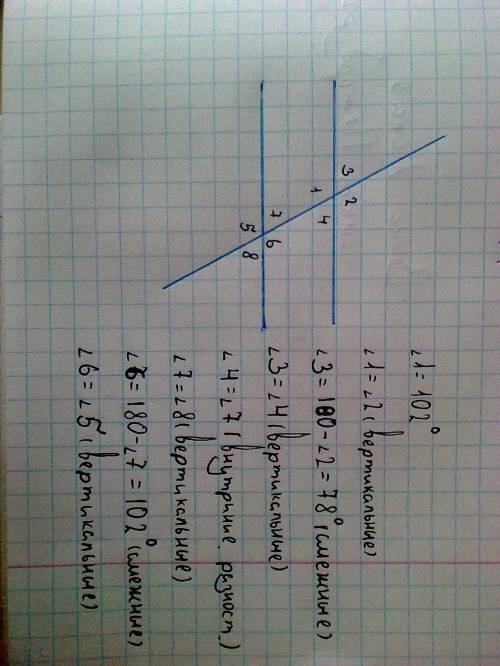 3 2
1 4
7 6
5 8
∠1 = 102°
∠1 = ∠2 (вертикальные)
∠3 = 180 - ∠2 = 78° (смежные)
∠3 = ∠4 (вертикальные)
∠4 = ∠7 (внутрине. разност.)
∠7 = ∠8 (вертикальные)
∠6 = 180 - ∠7 = 102° (смежные)
∠6 = ∠5 (вертикальные)